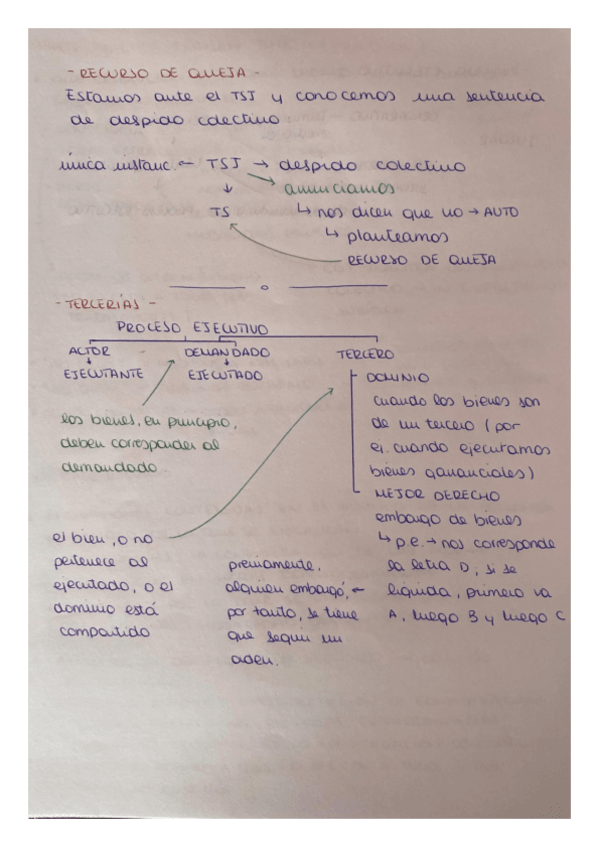 - RECURSO DE QUEJA -
Estamos ante el TSJ y conocemos una sentencia
de despido colectivo:
única instanc. ← TSJ → despido colectivo
↓ → anunciamos
TS ↳ nos dicen que no → AUTO
↳ planteamos
RECURSO DE QUEJA
- TERCERÍAS -
PROCESO EJECUTIVO
ACTOR DEMANDADO TERCERO
EJECUTANTE EJECUTADO
los bienes, en principio,
deben corresponder al
demandado
DOMINIO
cuando los bienes son
de un tercero (por
ej. cuando ejecutamos
bienes gananciales)
MEJOR DERECHO
embargo de bienes
↳ p.e. → nos corresponde
la letra D; si se
liquida, primero va
A, luego B y luego C
el bien, o no
pertenece al
ejecutado, o el
dominio está
compartido
previamente,
alguien embargó, ←
por tanto, se tiene
que seguir un
orden.